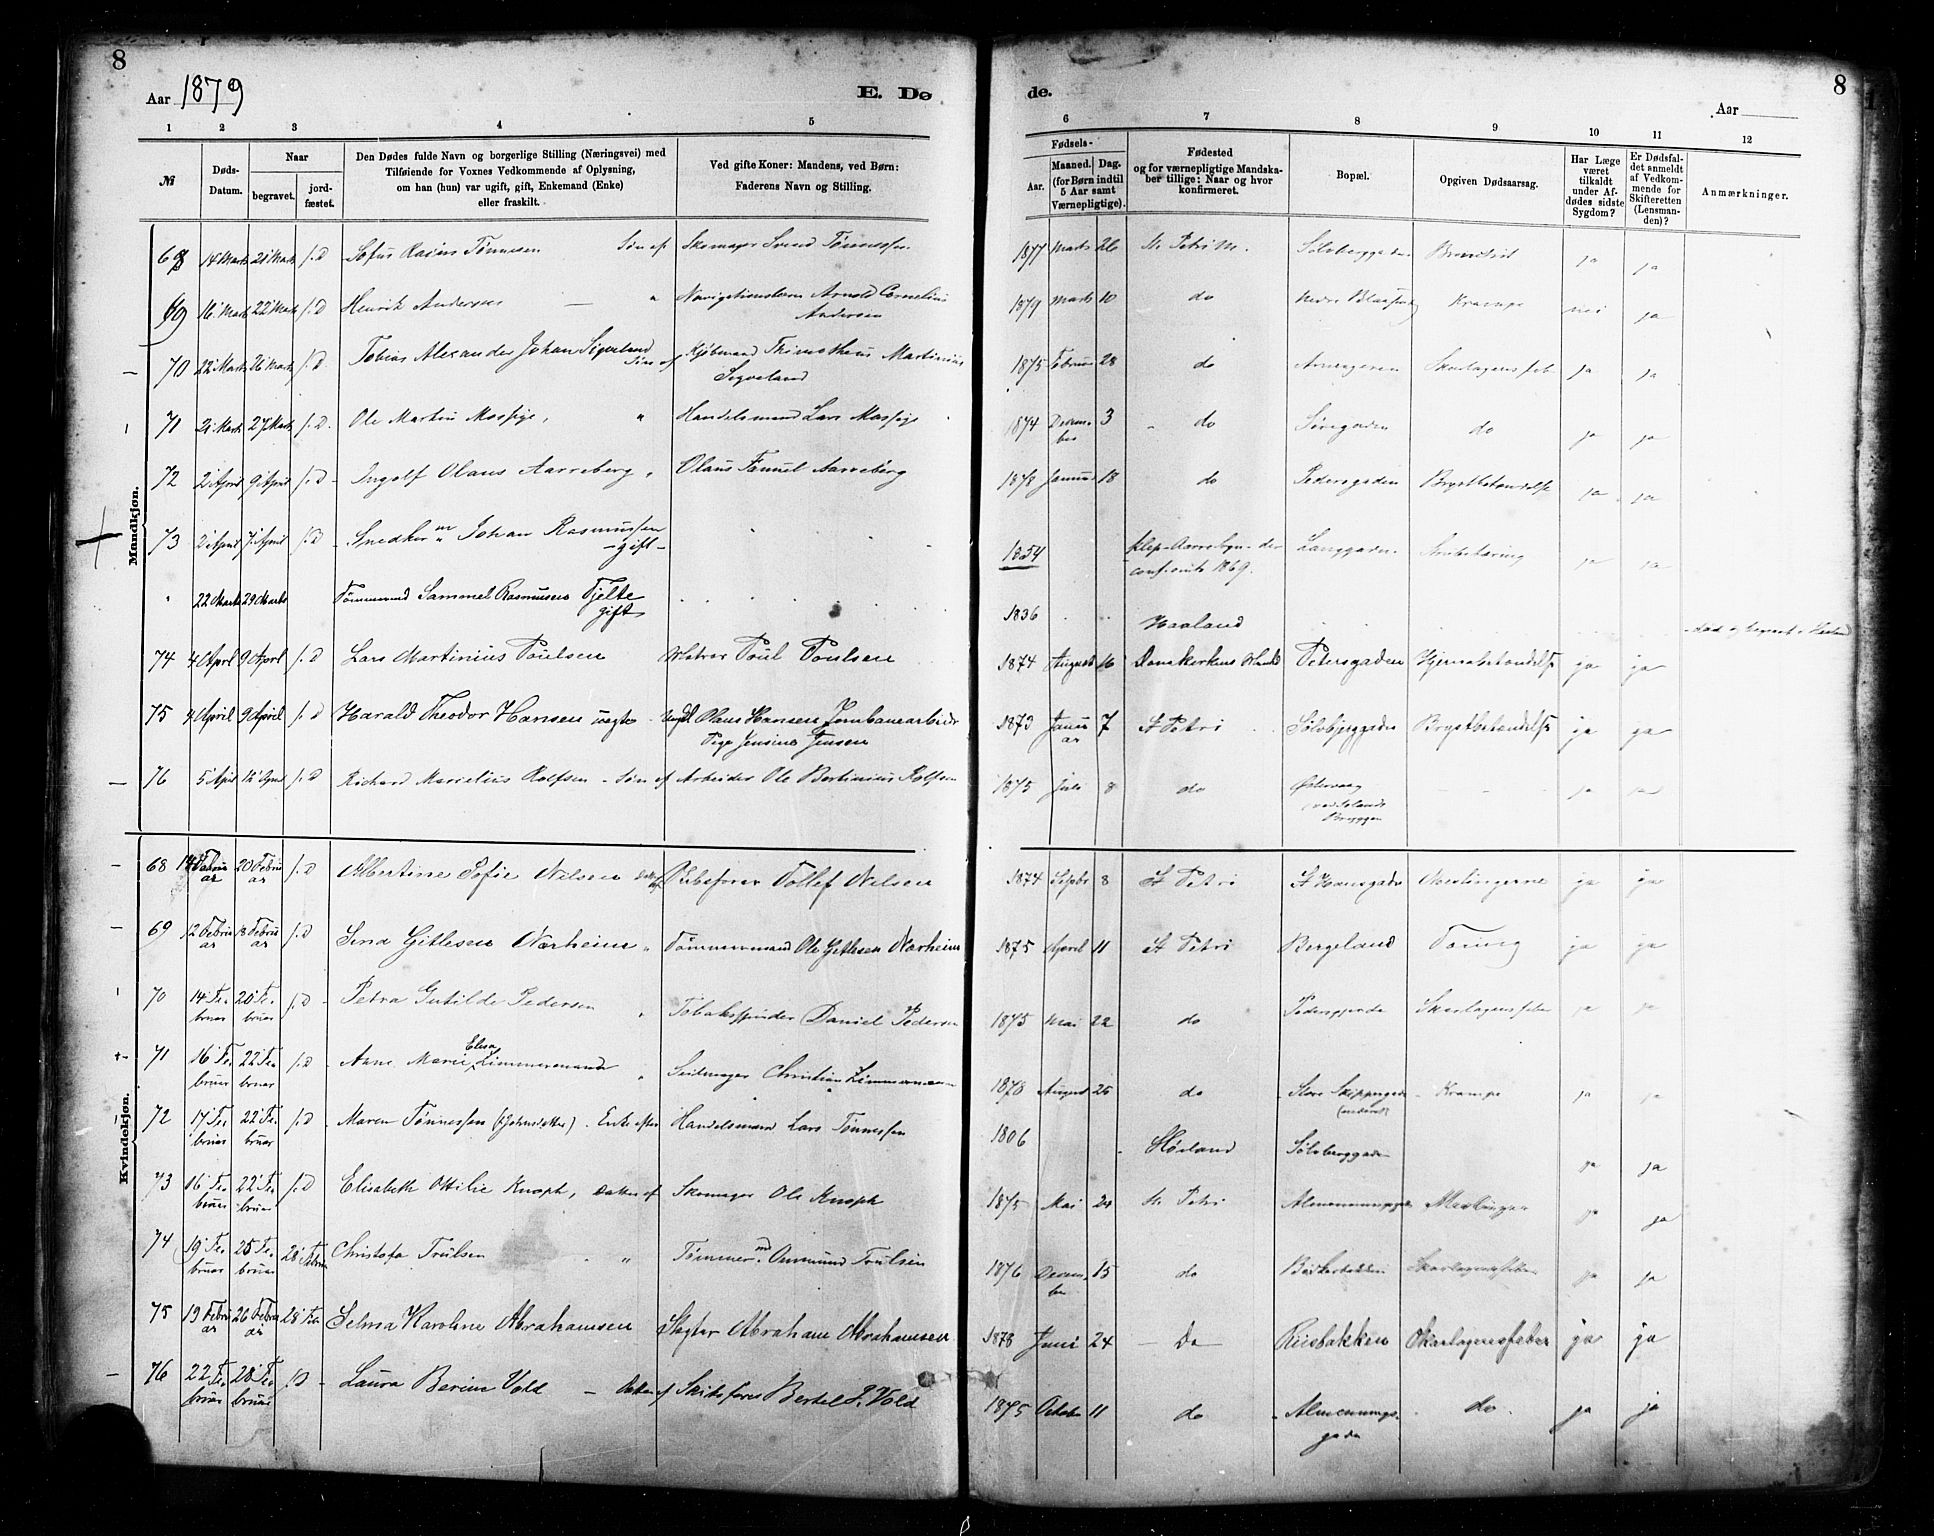 8
8
Aar 1879
E. Dø
de.
Aar
1 2 3 4 5
6 7 8 9 10 11 12
№
Døds-Datum.
Naar
begravet.
jord-fæstet.
Den Dødes fulde Navn og borgerlige Stilling (Næringsvei) med
Tilføiende for Voxnes Vedkommende af Oplysning,
om han (hun) var ugift, gift, Enkemand (Enke)
eller fraskilt.
Ved gifte Koner: Mandens, ved Børn:
Faderens Navn og Stilling.
Fødsels-
Aar.
Maaned. Dag.
(for Børn indtil
5 Aar samt
Værnepligtige).
Fødested
og for værnepligtige Mandska-
ber tillige: Naar og hvor
konfirmeret.
Bopæl.
Opgiven Dødsaarsag.
Har Læge
været
tilkaldt
under Af-
dødes sidste
Sygdom?
Er Dødsfal-
det anmeldt
af Vedkom-
mende for
Skifteretten
(Lensman-
den)?
Anmærkninger.
Mandkjøn.
68 14 Marts 21 Marts f. D Sofus Rasius Tønnesen Søn af Skomager Svend Tønnessen 1877 Marts 26 St. Petri M. Sølvberggaden ja ja
69 16 Marts 22 Marts f. D Henrik Andersen — " Arnold Cornelius
Andersen 1879 Marts 10 do Krampe nei ja
70 22 Marts 26 Marts f. D. Tobias Alexander Johan Sigveland Søn af Kjøbmand Thimotheus Martinius
Sigveland 1875 Februar 28 do Skarlagensfeber ja ja
71 21 Marts 27 Marts f. D. Ole Martin Mossige, " Handelsmand Lars Mossige 1874 Decem-
ber 3 do do ja ja
72 2 April 9 April f. D Ingolf Olaus Aarreberg " Olaus Aarreberg 1878 Januar 18 do Pedersgaden Brystbetændelse ja ja
73 2 April 7 April f. D Snedker Johan Rasmussen
- gift - 1854 Klep 1869. Langgaden ja ja
" 22 Marts 29 Marts Tømmermand Sammel Rasmusen Tjelte
gift 1836 Haaland
74 4 April 9 April f. D Lars Martinius Poulsen Matros Poul Poulsen 1874 August 16 Petersgaden Hjernebetændelse ja ja
75 4 April 9 April f. D Harald Theodor Hansen uægte Ungkl Olaus Hansen Jernbanearbeider
Pige Jensine Jensen 1873 Janu
ar 7 St Petri Sølvbjerggaden Brystbetændelse ja ja
76 5 April 12 April f. D Richard Marselius Rolfsen - Søn af Arbeider Ole Bertinius Rolfsen 1875 Juli 8 do Østervaag
Bryggen ja ja
Kvindekjøn.
68 14 Febru
ar 20 Febru
ar f. D Albertine Sofie Nilsen Datter af Tollef Nilsen 1874 Septbr 8 St Petri St Hansgaden Mæslingerne ja ja
69 12 Febru
ar 18 Febru
ar f. D Sina Gitlesen Nærheim " Tømmermand Ole Gitlesen Nærheim 1875 April 11 St Petri Bergeland Tæring ja ja
70 14 Fe-
bruar 20 Fe-
bruar f. D Petra Gutilde Pedersen " Tobaksspinder Daniel Pedersen 1875 Mai 22 do Pedersgaden Skarlagensfeber ja ja
71 16 Fe-
bruar 22 Fe-
bruar f. D Anne Marie Elisa Zimmermann " Christian Zimmermann 1878 August 25 do Store Skippergade Krampe ja ja
72 17 Fe-
bruar 22 Fe-
bruar f. D Maren Tønnessen Enke efter Handelsmand Lars Tønnessen 1806 Høiland Sølvberggaden ja ja
73 16 Fe-
bruar 22 Fe-
bruar f. D Elisabeth Ottilie Knoph, Datter af Skomager Ole Knoph 1875 Mai 24 St. Petri Mæslinger ja ja
74 19 Fe-
bruar 25 Fe-
bruar 28 Februar Christofa Trulsen " Tømmermd. Ommund Trulsen 1876 Decem-
ber 15 do Skarlagensfeber ja ja
75 19 Febru
ar 26 Febru
ar 28 Feb Selma Karoline Abrahamsen Slagter Abraham Abrahamsen 1878 Juni 24 Do Riisbakken Skarlagensfeber ja ja
76 22 Fe-
bruar 28 Fe-
bruar f. D Laura Berine Vold — Datter af Skibsfører Bertel P. Vold 1875 October 11 do Almennings-
gade do ja ja